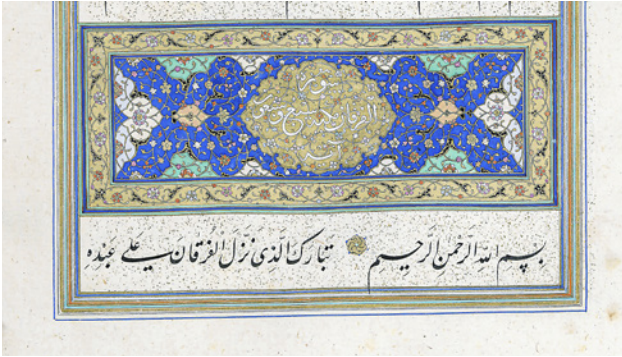 سورة
الفرقان سبع و سبعون
آية
بسم الله الرَّحْمٰنِ الرَّحيم تَبَارَكَ الَّذي نَزَّلَ الْفُرْقَانَ عَلٰي عَبْدِهِ